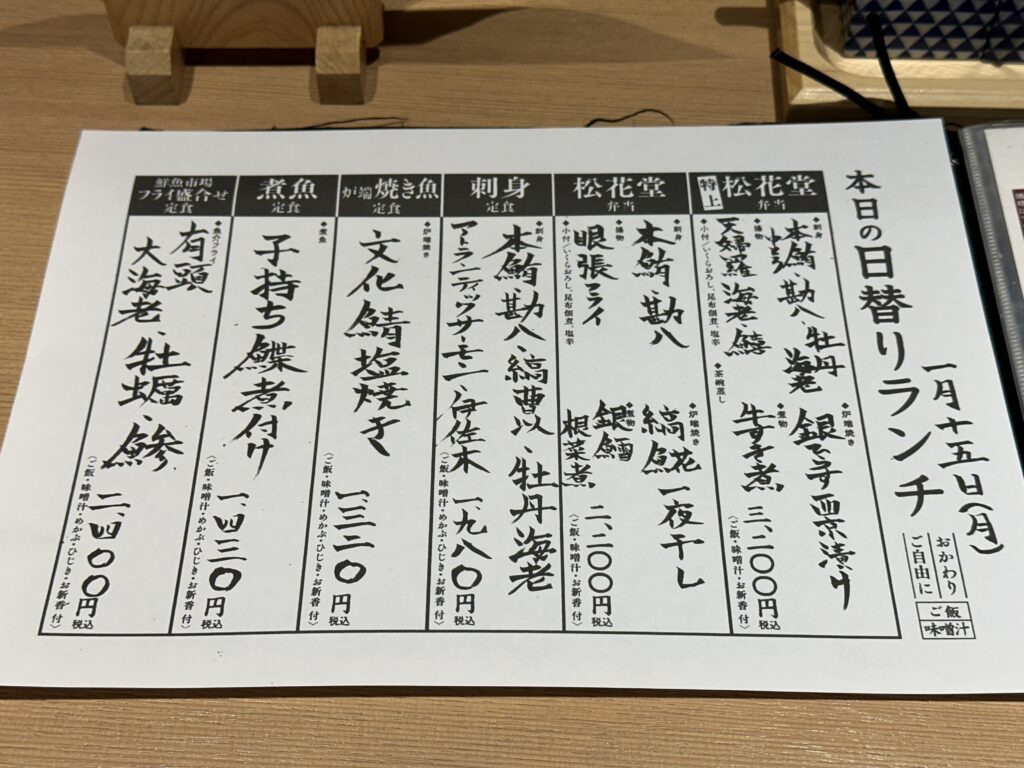 本日の日替りランチ
一月十五日(月)
おかわり
ご自由に
ご飯
味噌汁
特上
松花堂
弁当
◆刺身
本鮪、勘八、牡丹海老
◆炉端焼き
銀だら西京漬け
◆揚物
天婦羅 海老、鱚
◆煮物
牛すき煮
◆小付/いくらおろし、昆布佃煮、塩辛
◆茶碗蒸し
三、二〇〇円
税込
(ご飯・味噌汁・めかぶ・ひじき・お新香 付)
松花堂
弁当
◆刺身
本鮪、勘八
◆炉端焼き
縞𩸽一夜干し
◆揚物
眼張フライ
◆煮物
銀鱈
根菜煮
◆小付/いくらおろし、昆布佃煮、塩辛
二、二〇〇円
税込
(ご飯・味噌汁・めかぶ・ひじき・お新香 付)
刺身
定食
◆刺身
本鮪、勘八、縞曹以、牡丹海老
アトランティックサーモン、伊佐木
一、九八〇円
税込
(ご飯・味噌汁・めかぶ・ひじき・お新香 付)
炉端焼き魚
定食
◆炉端焼き
文化鯖塩焼き
一、三二〇円
税込
(ご飯・味噌汁・めかぶ・ひじき・お新香 付)
煮魚
定食
◆煮魚
子持ち鰈煮付け
一、四三〇円
税込
(ご飯・味噌汁・めかぶ・ひじき・お新香 付)
鮮魚市場
フライ盛合せ
定食
◆魚介フライ
有頭
大海老、牡蠣、鯵
二、四〇〇円
税込
(ご飯・味噌汁・めかぶ・ひじき・お新香 付)